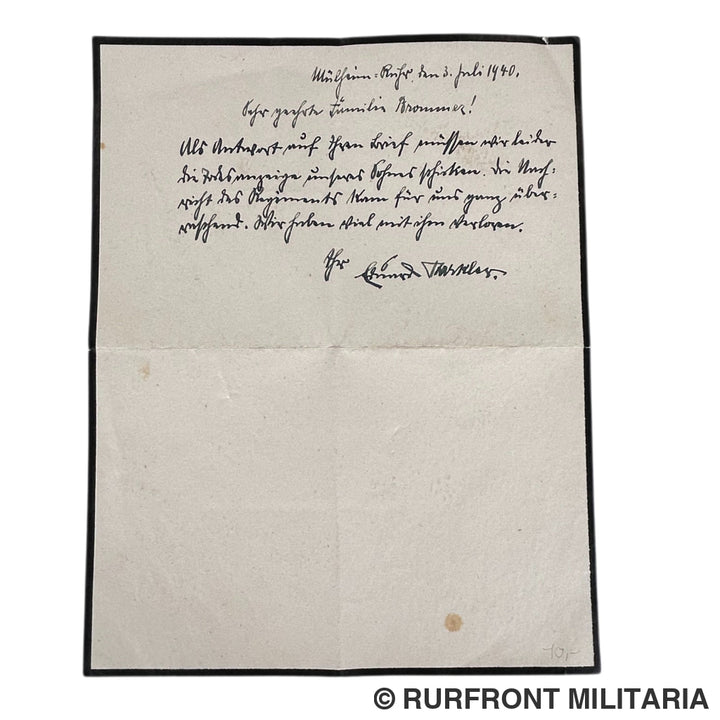 Mülheim-Ruhr, den 3. Juli 1940.
Sehr geehrte Familie Brommer!
Als Antwort auf Ihren Brief müssen wir leider
die Todesanzeige unseres Sohnes schicken. Die Nach-
richt des Regiments kam für uns ganz über-
raschend. Wir haben viel mit ihm verloren.
Ihr Eduard
10,-
© RURFRONT MILITARIA